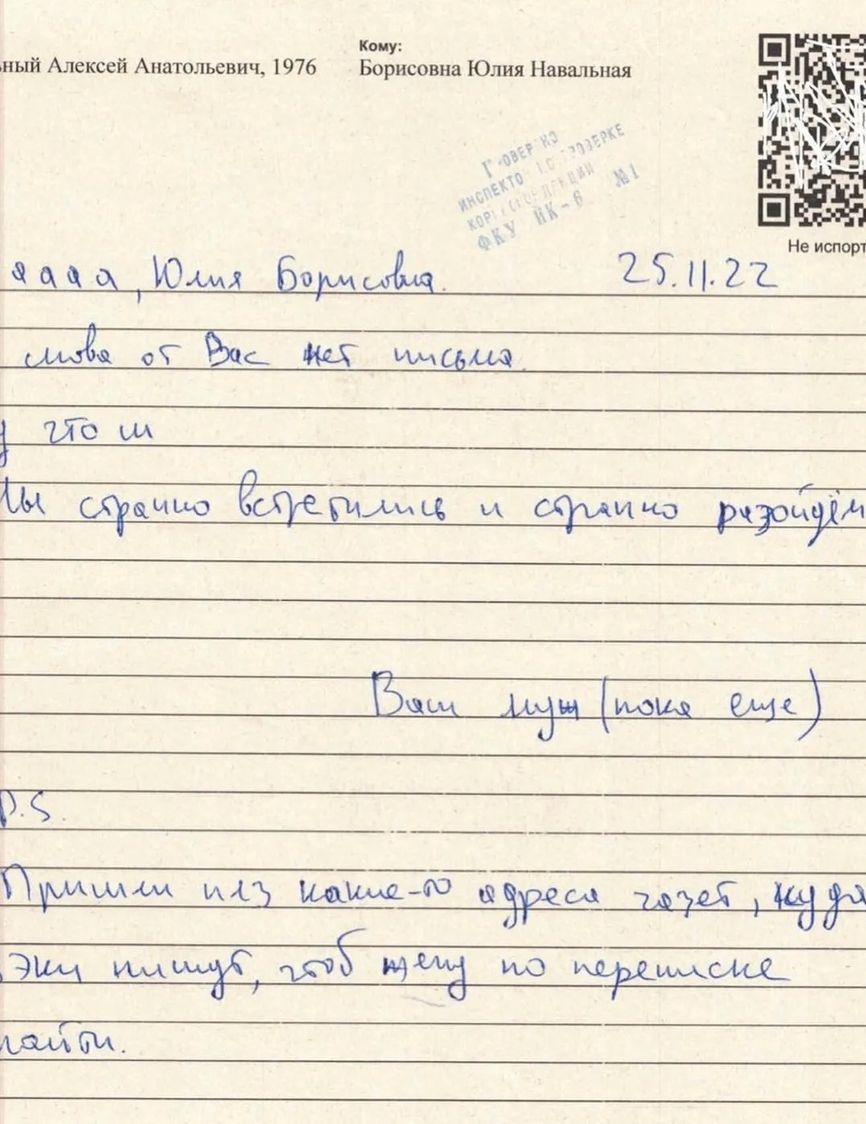 Кому:
ный Алексей Анатольевич, 1976
Борисовна Юлия Навальная
ИНСПЕКТО
ФКУ ИК-6 №1
Не испорт
аааа, Юлия Борисовна. 25.11.22
снова от Вас нет письма.
у что ш
Мы странно встретились и странно разойдём
Ваш муж (пока еще)
P.S.
Пришли плз какие-то адреса газет, куда
зэки пишут, чтоб жену по переписке
найти.